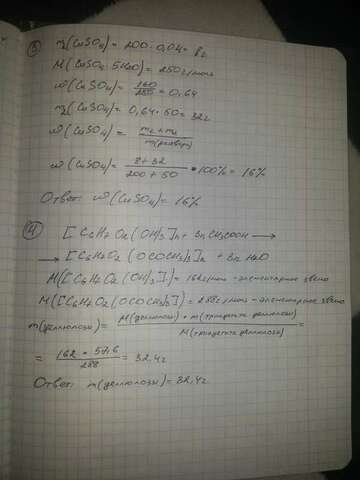 ③ m₁(CuSO₄) = 200 · 0,04 = 8г
M(CuSO₄ · 5H₂O) = 250г/моль
ω(CuSO₄) = 160/250 = 0,64
m₂(CuSO₄) = 0,64 · 50 = 32г
ω(CuSO₄) = m₁ + m₂ / m(раствора)
ω(CuSO₄) = 8 + 32 / 200 + 50 • 100% = 16%
Ответ: ω(CuSO₄) = 16%
④ [C₆H₇O₂(OH)₃]n + 3nCH₃COOH →
→ [C₆H₇O₂(OCOCH₃)₃]n + 3n H₂O
M([C₆H₇O₂(OH)₃]) = 162г/моль - элементарное звено
M([C₆H₇O₂(OCOCH₃)₃]) = 288г/моль - элементарное звено
m(целлюлозы) = M(целлюлозы) • m(триацетата целлюлозы) / M(триацетата целлюлозы) =
= 162 • 57,6 / 288 = 32,4г
Ответ: m(целлюлозы) = 32,4г